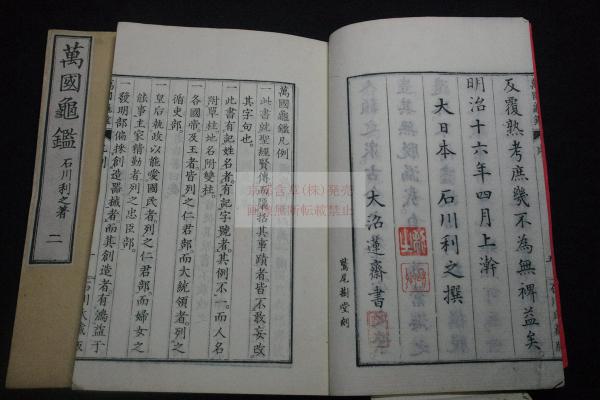 萬國龜鑑
石川利之著
二
反覆熟考庶幾不為無裨益矣
明治十六年四月上澣
大日本 石川利之撰
大沼蓮齋書
鷲尾樹堂刻
萬國龜鑑凡例
一此書就聖經賢傳或隱括其事蹟者皆不敢妄改
其字句也
一此書有記姓名者有記字號者其例不一而人名
附單柱地名附雙柱
一各國帝及王者皆列之仁君部而大統領者列之
循吏部
一皇后執政以能愛國民者列之仁君部而婦女之
能事主家精勤者列之忠臣部
一發明部偏採創造器械者而其創造者有鴻益于